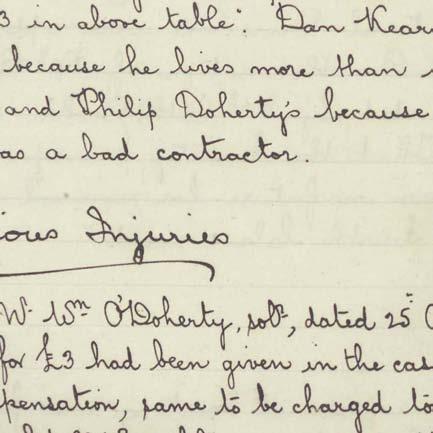 3 in above table". Dan Kear
because he lives more than
and Philip Doherty's because
as a bad contractor.
ious Injuries
Wm O'Doherty, solr, dated 25
for £3 had been given in the cas
pensation, same to be charged to